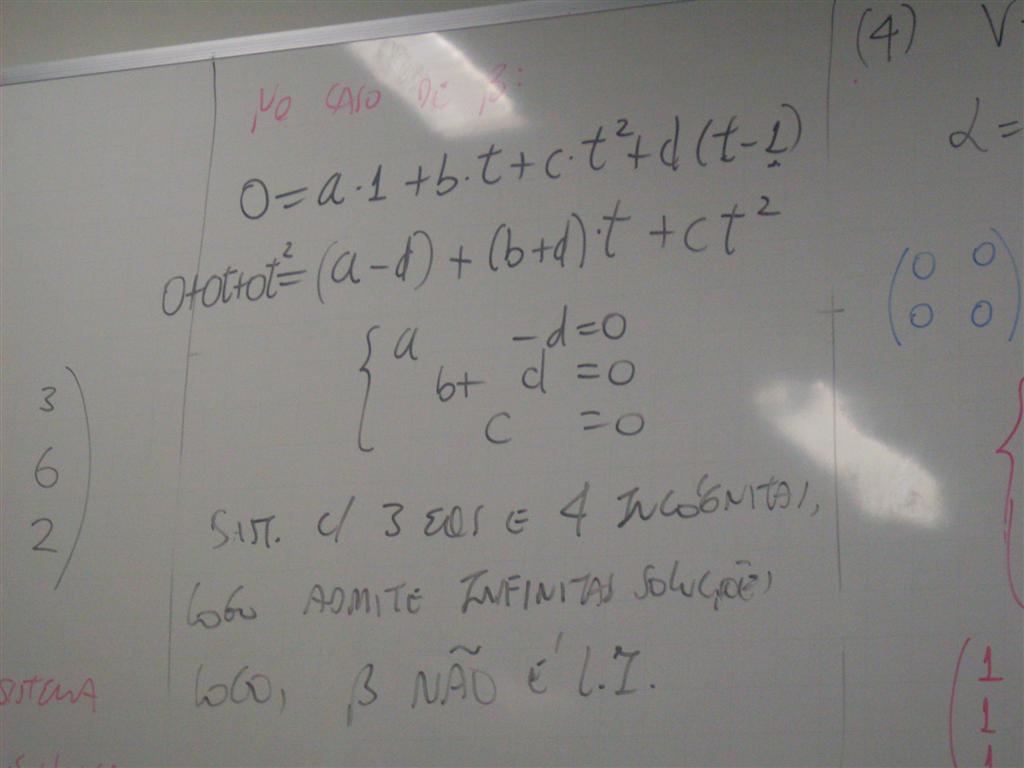 NO CASO DE β:
0=a·1+b·t+c·t²+d(t-1)
0+0t+0t²=(a-d)+(b+d)·t+ct²
{a -d=0
b+ d =0
c =0
SIST. C/ 3 EQS E 4 INCÓGNITAS,
LOGO ADMITE INFINITAS SOLUÇÕES
LOGO, β NÃO É L.I.
3
6
2
SISTEMA
(4) V
α=
(0 0
0 0)
(1
1
1